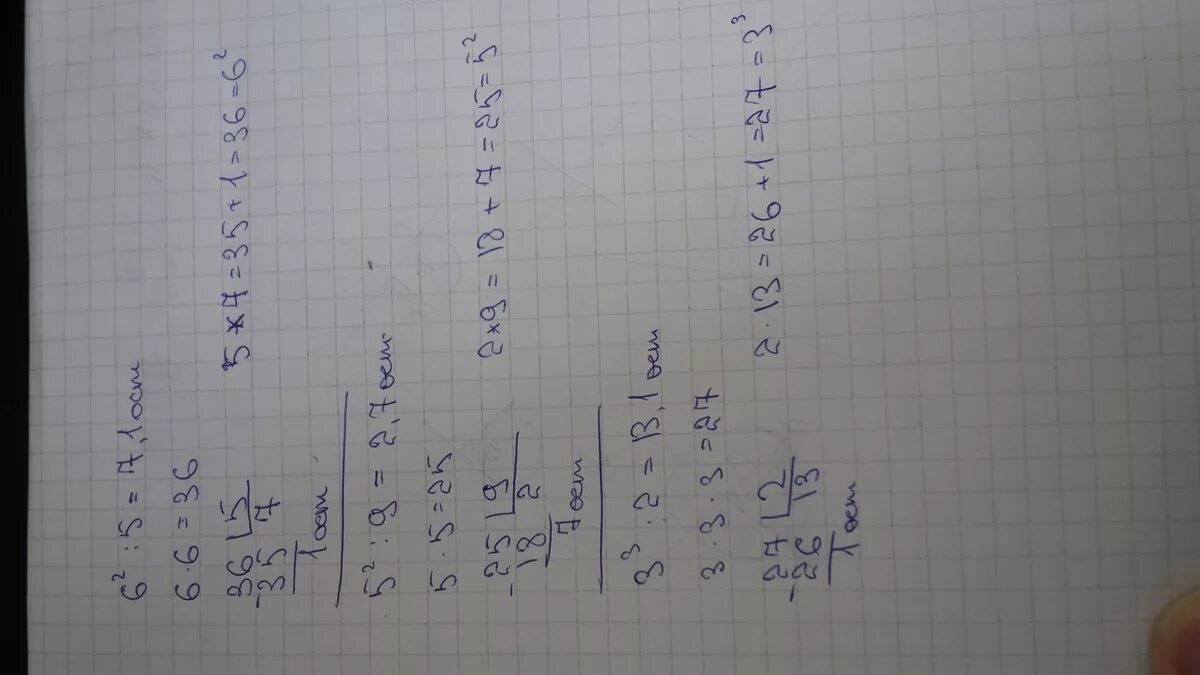 6² : 5 = 7, 1 ост
6 · 6 = 36
36 | 5
-35 7
1 ост
5 × 7 = 35 + 1 = 36 = 6²
5² : 9 = 2, 7 ост
5 · 5 = 25
-25 | 9
18 2
7 ост
2 × 9 = 18 + 7 = 25 = 5²
3³ : 2 = 13, 1 ост
3 · 3 · 3 = 27
-27 | 2
26 13
1 ост
2 · 13 = 26 + 1 = 27 = 3³